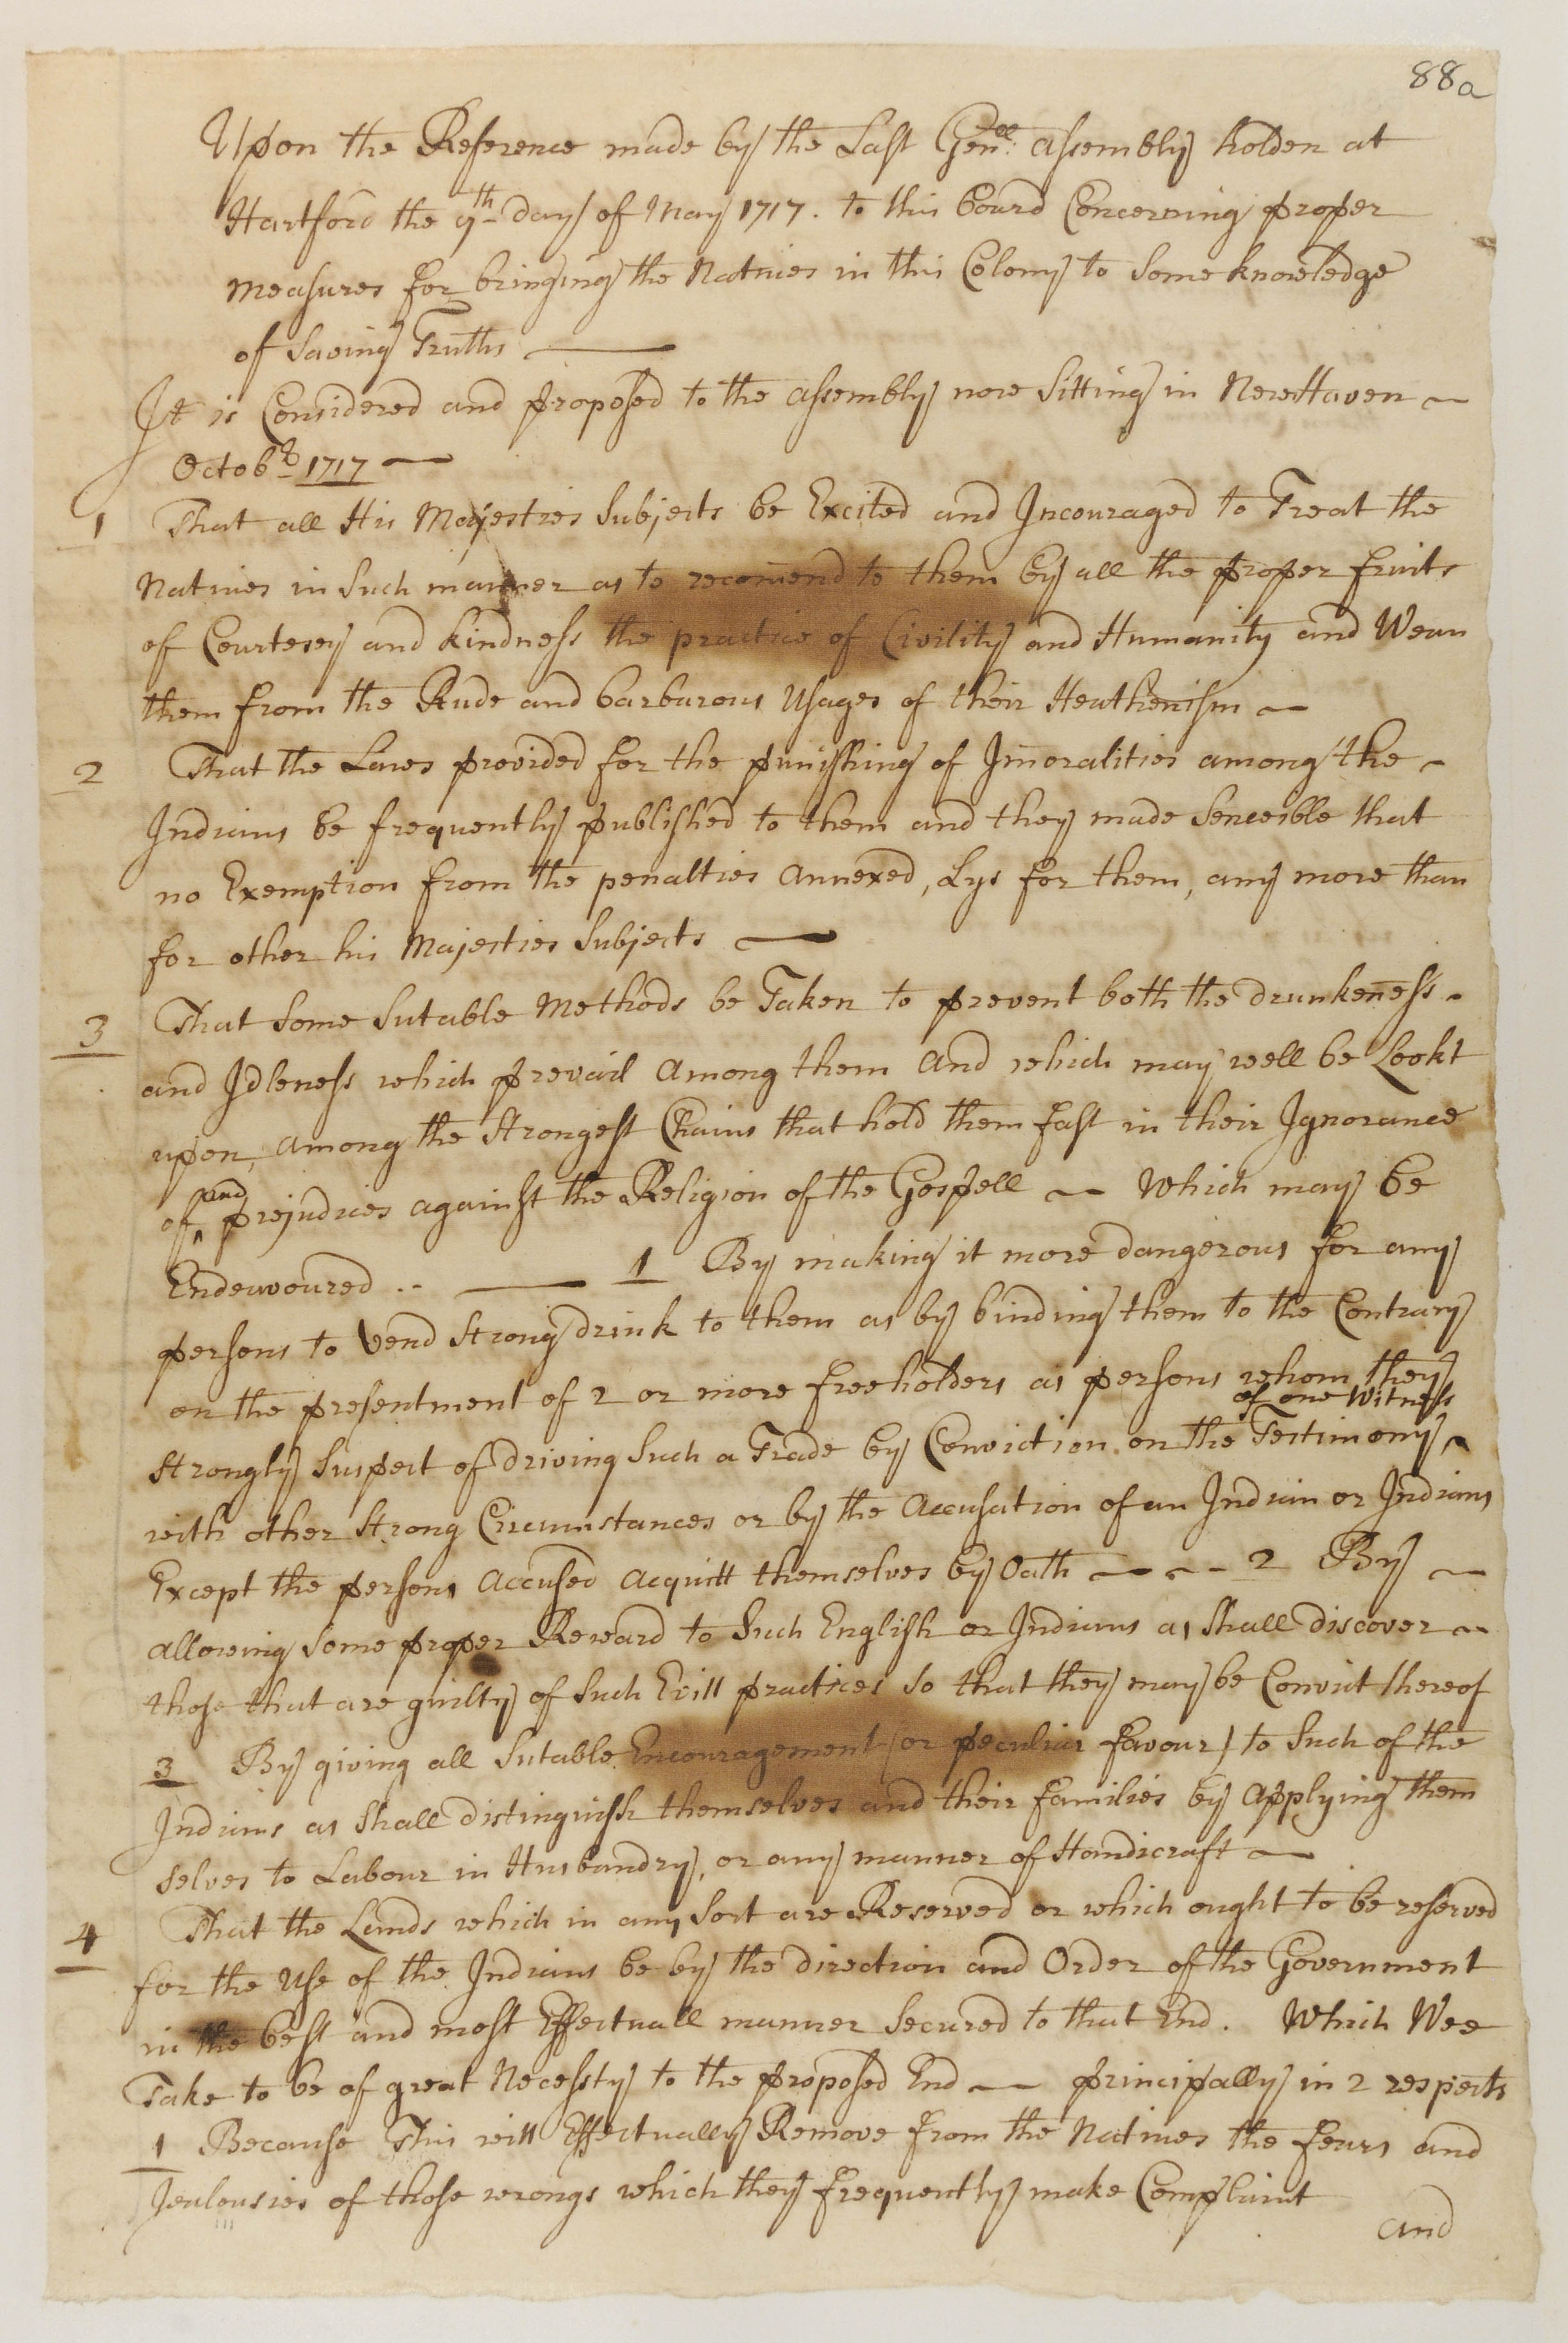 88a
Upon the Reference made by the Last Genll: assembly holden at
Hartford the 9th day of May 1717. to this board Concerning proper
measures for bringing the Natives in this Colony to Some knowledge
of Saving Truths —
It is Considered and proposed to the assembly now Sitting in NewHaven ~
Octobr 1717 —
1 That all His Majesties Subjects be Excited and Incouraged to Treat the
Natives in Such manner as to recomend to them by all the proper fruits
of Courtesey and kindness the practice of Civility and Humanity and Wean
them from the Rude and barbarous Usages of their Heathenism ~
2 That the Laws provided for the punishing of Imoralities among the ~
Indians be frequently published to them and they made Senceible that
no Exemption from the penalties annexed, Lys for them, any more than
for other his Majesties Subjects —
3 That Some Sutable Methods be Taken to prevent both the drunkeness ~
and Idleness which prevail among them and which may well be Lookt
upon, among the Strongest Chains that hold them fast in their Ignorance
of, and prejudices against the Religion of the Gospell ~ Which may be
Endeavoured .. — 1 By making it more dangerous for any
persons to Vend Strong drink to them as by binding them to the Contrary
on the presentment of 2 or more freeholders as persons whom they
of one Witness
Strongly Suspect of driving Such a Trade by Conviction on the Testimony ~
with other Strong Circumstances or by the Accusation of an Indian or Indians
Except the persons Accused acquitt themselves by Oath — ~ - 2 By ~
allowing Some proper Reward to Such English or Indians as Shall discover ~
those that are guilty of Such Evill practices So that they may be Convict thereof
3 By giving all Sutable Encouragement (or peculiar favour) to Such of the
Indians as Shall distinguish themselves and their families by Applying them
selves to Labour in Husbandry, or any manner of Handicraft ~
4 That the Lands which in any Sort are Reserved or which ought to be reserved
for the Use of the Indians be by the direction and Order of the Government
in the best and most Effectuall manner Secured to that End. Which Wee
Take to be of great Necessty to the proposed End ~ principally in 2 respects
1 Because This will Effectually Remove from the Natives the fears and
Jealousies of those wrongs which they frequently make Complaint
and